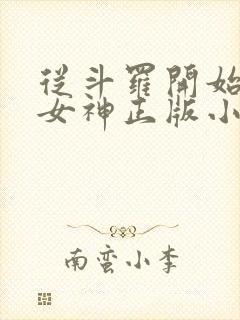 從斗羅開始
女神正版小
南蛮小李